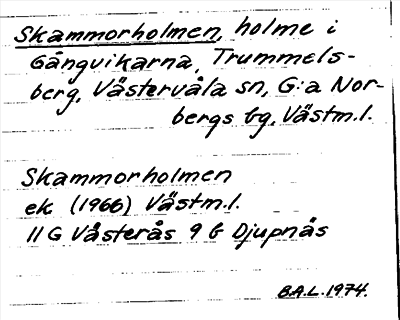 Skammorholmen, holme i
Gångvikarna, Trummels-
berg, Västervåla sn, G:a Nor-
bergs bg, Västm.l.
Skammorholmen
ek (1966) Västm.l.
11 G Västerås 9 b Djupnäs
B.A.L. 1974.